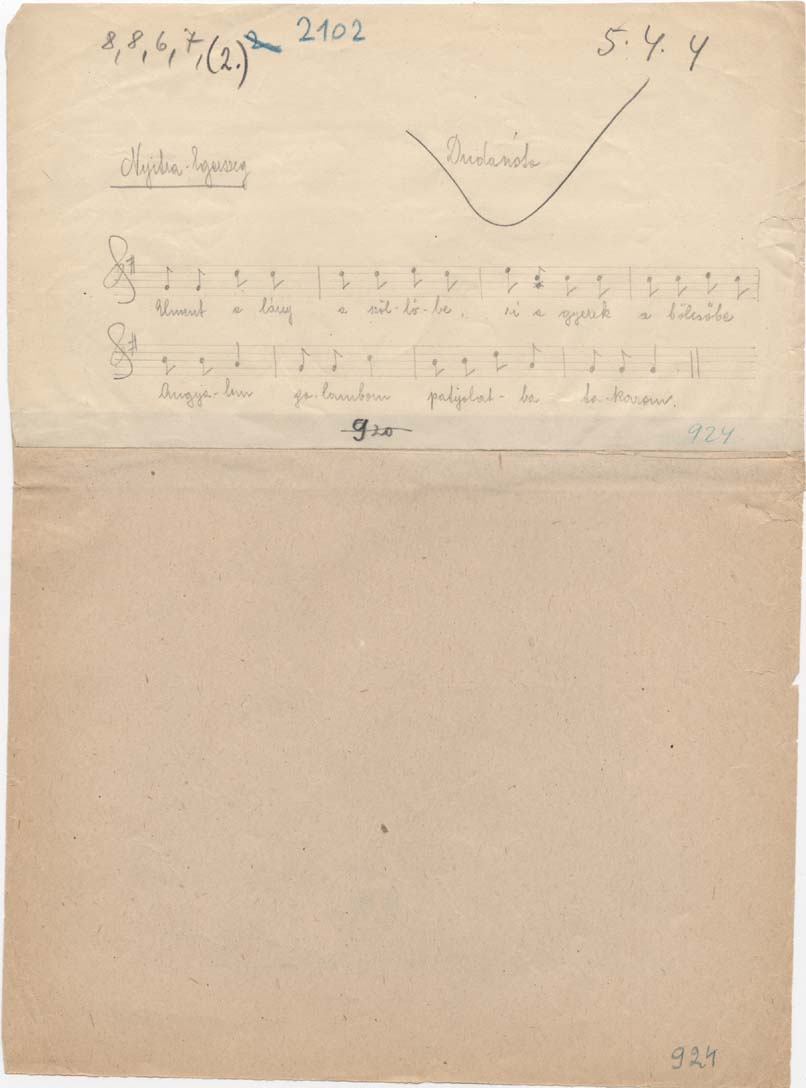 8, 8, 6, 7, (2.) 2 2102
5. 4. 4
Nyitra-Egerszeg
Dudanóta
Elment a lány a szöl-lő-be, sí a gyerek a bölcsőbe
Angya-lom ga-lambom patyolat-ba ta-karom.
920
924
924